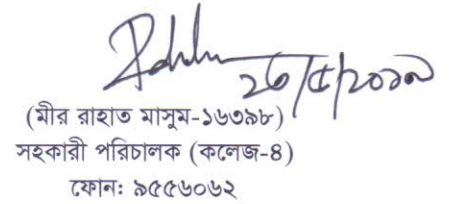 ২৩/৫/২০১৯
(মীর রাহাত মাসুম-১৬৩৯৮)
সহকারী পরিচালক (কলেজ-৪)
ফোনঃ ৯৫৫৬০৬২